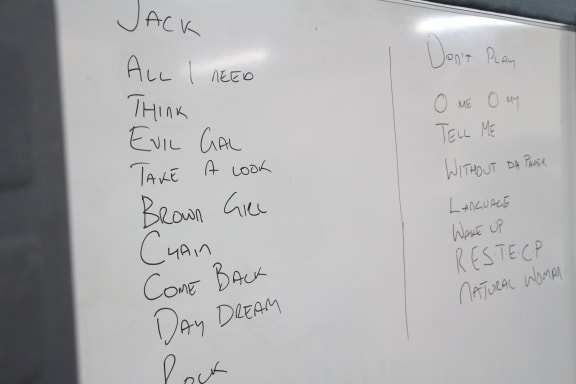 JACK
ALL I NEED
THINK
EVIL GAL
TAKE A LOOK
BROWN GIRL
CHAIN
COME BACK
DAY DREAM
ROCK
DON'T PLAY
O ME O MY
TELL ME
WITHOUT DA
LANGUAGE
WAKE UP
R.E.S.T.E.C.P
NATURAL WOMAN